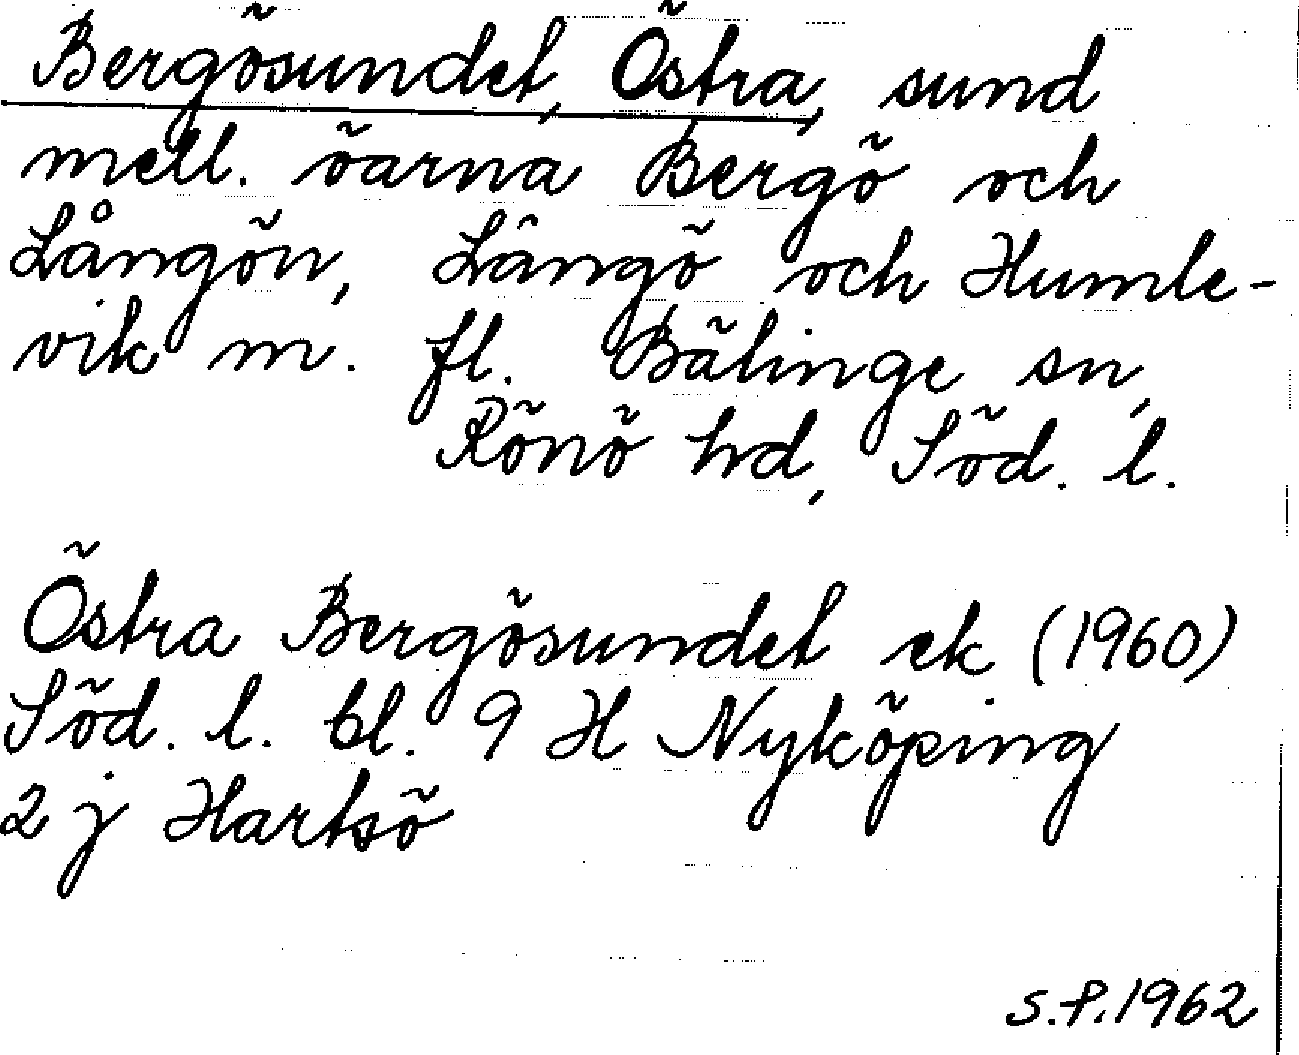 Bergösundet, Östra, sund
mell. öarna Bergö och
Långön, Långö och Humle-
vik m. fl. Bälinge sn,
Rönö hd, Söd. l.
Östra Bergösundet ek (1960)
Söd. l. bl. 9 H Nyköping
2 j Hartsö
S.P.1962